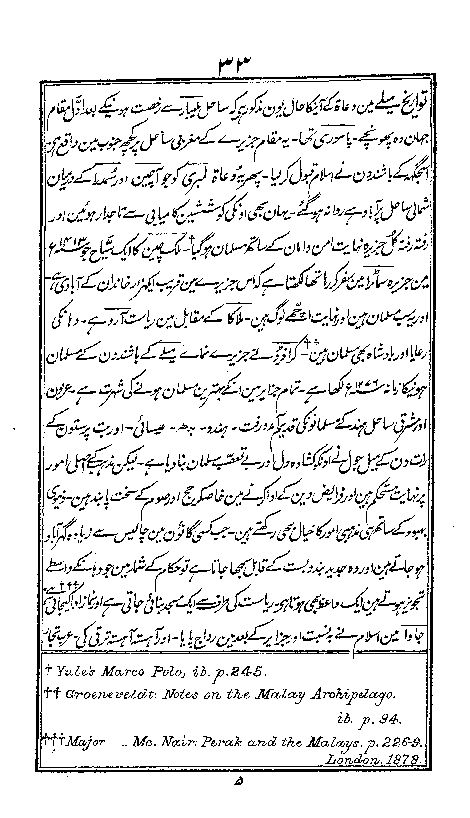 ۳۳
تواریخ میلے مین دعاۃ کے آنیکا حال یون مذکور ہے کہ ساحل ملیبار سے رخصت ہونیکے بعد اوّل مقام
جہان وہ پہونچے۔ پاسوری تھا۔ یہ مقام جزیرے کے مغربی ساحل پر کچھ جنوب مین واقع ہی
اسجگہ کے باشندون نے اسلام قبول کر لیا۔ پھر یہ دعاۃ لمبری کو جو آچین اور سمدا کے درمیان
شمالی ساحل پر آباد ہے روانہ ہو گئے۔ یہان بھی اونکی کوششین کامیابی سے تاجدار ہوئین اور
رفتہ رفتہ کل جزیرہ نہایت امن و امان کے ساتھ مسلمان ہو گیا† ملک چین کا ایک سیّاح جو ۱۴۱۳ء
مین جزیرہ سماٹرا مین سفر کر رہا تھا لکھتا ہے کہ اس جزیرے مین قریب ایکہزار خاندان کے آبادی ہے
اور یہ سب مسلمان ہین اور نہایت اچھے لوگ ہین۔ ملاکا کے مقابل مین ریاست آرو ہے۔ وہانکی
رعایا اور بادشاہ بھی مسلمان ہین†† کرافرڈ نے جزیرے نمائے میلے کے باشندون کے مسلمان
ہونیکا زمانہ ۱۲۷۶ء لکھا ہے۔ تمام جزایر مین انکے بہترین مسلمان ہونے کی شہرت ہے۔ عربون
اور مشرقی ساحل ہند کے مسلمانونکی قدیم آمدورفت۔ ہندو۔ بدھ۔ عیسائی۔ اور بت پرستون کے
رات دن کے میل جول نے اونکو کشادہ دل اور بے تعصب مسلمان بنا دیا ہے۔ لیکن مذہب کے اصلی امور
پر نہایت مستحکم ہین اور فرایض دین کے ادا کرنے مین خاصکر حج اور صوم کے سخت پابند ہین۔ دنیوی
بہبود کے ساتھ ہی مذہبی امور کا خیال بھی رکھتے ہین۔ جب کسی گاؤن مین چالیس سے زیادہ گھر آباد
ہو جاتے ہین اور وہ جدید بندوبست کے قابل سمجھا جاتا ہے تو حکام کے شمار مین جو وہانکے واسطے
تجویز ہوتے ہین ایک واعظ بھی ہوتا ہے۔ ریاست کی طرف سے ایک مسجد بنائی جاتی ہے اور نماز ادا کیجاتی ہے†††
جاوا مین اسلام نے بہ نسبت اور جزایر کے بعد مین رواج پایا۔ اور آہستہ آہستہ ترقی کی۔ عرب تجار
† Yule's Marco Polo, ib. p. 245.
†† Groeneveldt: Notes on the Malay Archipelago.
ib. p. 94.
†††Major .. Mc. Nair: Perak and the Malays. p. 226-9.
London. 1878.
۵